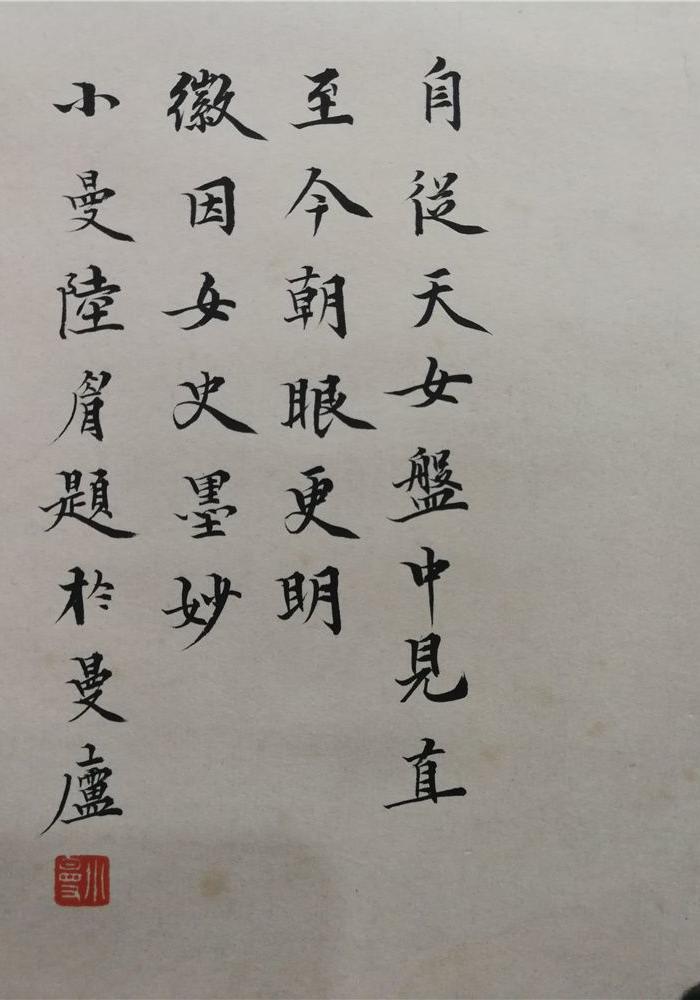 自從天女盤中見直
至今朝眼更明
徽因女史墨妙
小曼陸眉題於曼廬
小曼